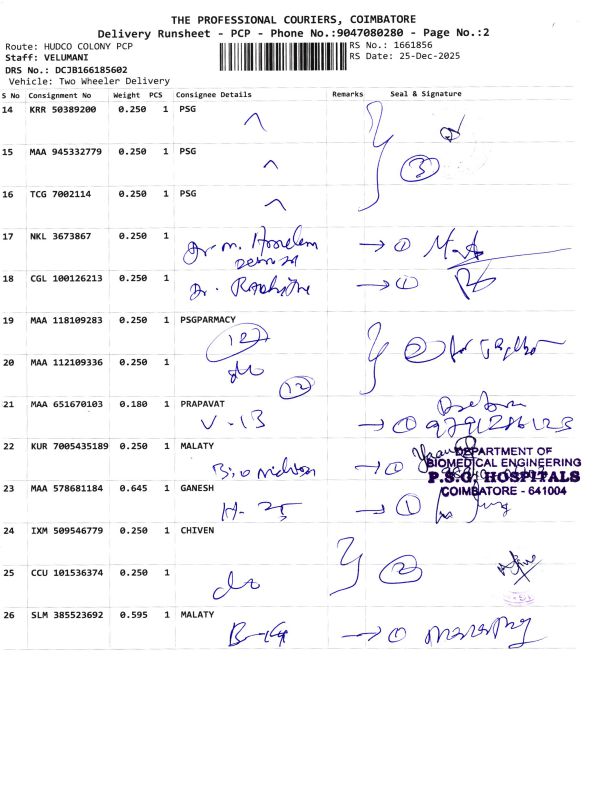 THE PROFESSIONAL COURIERS, COIMBATORE
Delivery Runsheet - PCP - Phone No.:9047080280 - Page No.:2
Route: HUDCO COLONY PCP
RS No.: 1661856
Staff: VELUMANI
RS Date: 25-Dec-2025
DRS No.: DCJB166185602
Vehicle: Two Wheeler Delivery
S No Consignment No Weight PCS Consignee Details Remarks Seal & Signature
14 KRR 50389200 0.250 1 PSG
15 MAA 945332779 0.250 1 PSG
3
16 TCG 7002114 0.250 1 PSG
17 NKL 3673867 0.250 1
Dr. M.
1
18 CGL 100126213 0.250 1
Dr.
1
19 MAA 118109283 0.250 1 PSGPARMACY
127
2
20 MAA 112109336 0.250 1
do
12
21 MAA 651670103 0.180 1 PRAPAVAT
V-13
1
22 KUR 7005435189 0.250 1 MALATY
DEPARTMENT OF
BIOMEDICAL ENGINEERING
1
P.S.G. HOSPITALS
23 MAA 578681184 0.645 1 GANESH
COIMBATORE - 641004
H-25
1
24 IXM 509546779 0.250 1 CHIVEN
2
25 CCU 101536374 0.250 1
do
26 SLM 385523692 0.595 1 MALATY
1